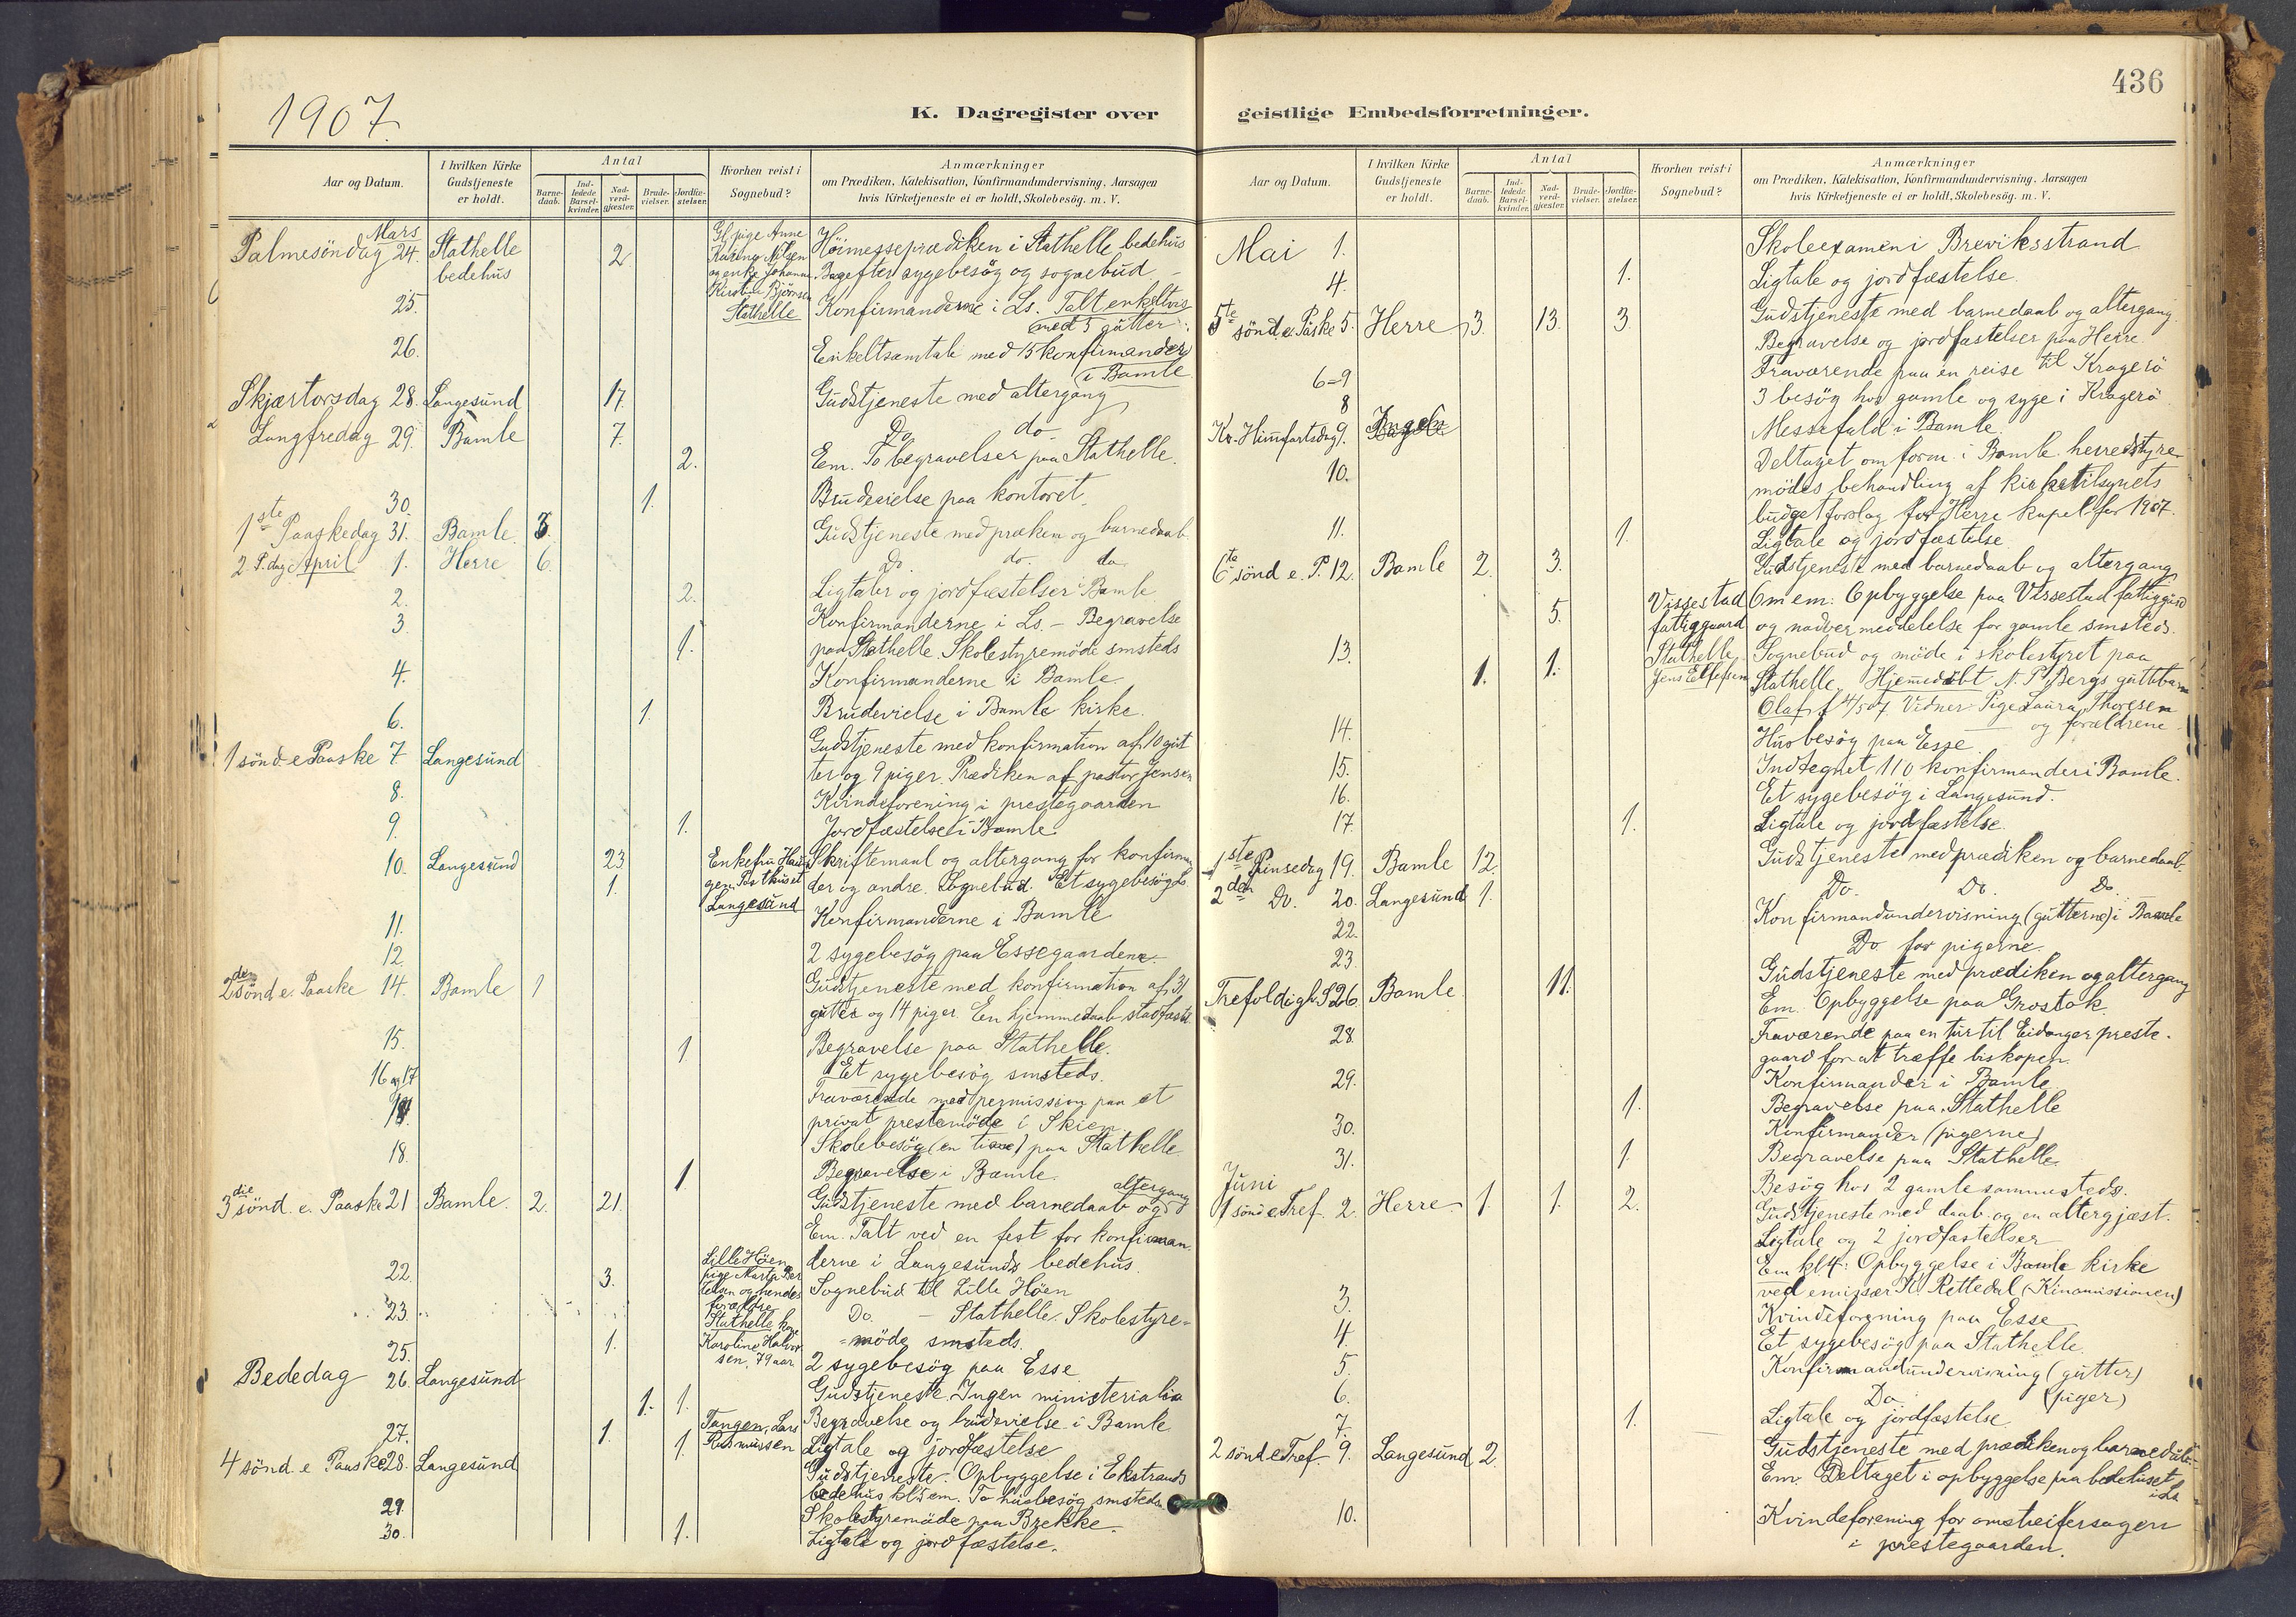 1907.
K. Dagregister over
Aar og Datum.
I hvilken Kirke Gudstjeneste er holdt.
Antal
Barne-daab.
Ind-ledede Barsel-kvinder.
Nad-verd-gjæster.
Brude-vielser.
Jordfæ-stelser.
Hvorhen reist i Sognebud?
Anmærkninger
om Prædiken, Katekisation, Konfirmandundervisning, Aarsagen
hvis Kirketjeneste ei er holdt, Skolebesøg. m. V.
Mars
Palmesöndag 24. Stathelle bedehus 2 Gl. pige Anne Karine Nilsen og enke Johanne Kirstine Björnsen Stathelle Höimesseprædiken i Stathelle bedehus
Bagefter sygebesög og sognebud.
25. Konfirmanderne i Ls. Talt enkeltvis
med 5 gutter.
26. Enkeltsamtale med 15 konfirmander
i Bamle
Skjærtorsdag 28. Langesund 17. Gudstjeneste med altergang
Langfredag 29. Bamle 7. Do. do.
2. Em. To begravelser paa Stathelle.
30. 1. Brudevielse paa kontoret.
1ste Paaskedag 31. Bamle 3. Gudstjeneste med præken og barnedaab
2 P.dag April 1. Herre 6. Do. do. do.
2. 2. Ligtaler og jordfæstelser i Bamle
3. Konfirmanderne i Ls. – Begravelse
1. paa Stathelle. Skolestyremöde smsteds
4. Konfirmanderne i Bamle.
6. 1. Brudevielse i Bamle kirke.
1 sönd e Paaske 7 Langesund Gudstjeneste med konfirmation af 10 gut
ter og 9 piger. Prædiken af pastor Jensen
8. Kvindeforening i prestegaarden
9. 1. Jordfæstelse i Bamle
10. Langesund 23 Enkefru Posthuset Skriftemaal og altergang for konfirman
1. Langesund der og andre. Sognebud. Et sygebesög Ls.
11. Konfirmanderne i Bamle
12. 2 sygebesög paa Essegaardene.
2den sönd e. Paaske 14. Bamle 1 Gudstjeneste med konfirmation af 31
gutter og 14 piger. En hjemmedaab stadfæstet
15. 1 Begravelse paa Stathelle.
Et sygebesög smsteds.
16 og 17 Fraværende med permission paa et
privat prestemöde i Skien
18. Skolebesög (en time) paa Stathelle
1 Begravelse i Bamle.
3die sönd. e. Paaske 21 Bamle. 2. 21. Gudstjeneste med barnedaab og altergang
Em. Talt ved en fest for konfirman
derne i Langesunds bedehus.
22. 3. Lille Höen pige og hendes forældre Sognebud til Lille Höen
23. Stathelle Do. – Stathelle. Skolestyre=
1. Karoline Halvorsen, 79 aar =möde smsteds.
25. 2 sygebesög paa Esse
Bededag 26. Langesund Gudstjeneste. Ingen ministerialia
1. 1. Begravelse og brudevielse i Bamle
27. 1. 1. Tangen, Lars Rasmussen Ligtale og jordfæstelse
4 sönd. e Paaske 28. Langesund Gudstjeneste. Opbyggelse i Ekstrands
bedehus kl 5 em. To husbesög smsteds.
29. Skolestyremöde paa Brekke.
30. 1. Ligtale og jordfæstelse.
436
geistlige Embedsforretninger.
Aar og Datum.
I hvilken Kirke Gudstjeneste er holdt.
Antal
Barne-daab.
Ind-ledede Barsel-kvinder.
Nad-verd-gjæster.
Brude-vielser.
Jordfæ-stelser.
Hvorhen reist i Sognebud?
Anmærkninger
om Prædiken, Katekisation, Konfirmandundervisning, Aarsagen
hvis Kirketjeneste ei er holdt, Skolebesøg. m. V.
Mai 1. Skoleexamen i Breviksstrand
4. 1. Ligtale og jordfæstelse.
5te sönd. e. Paske 5. Herre 3. 13. 3. Gudstjeneste med barnedaab og altergang.
Begravelse og jordfæstelser paa Herre.
6=9 Fraværende paa en reise til Kragerö
8 3 besög hos gamle og syge i Kragerö
Kr. Himmfartsdag 9. Messefald i Bamle.
10. Deltaget om form. i Bamle herredstyre
mödes behandling af kirketilsynets
budgetforslag for Herre kapel for 1907.
11. 1. Ligtale og jordfæstelse
6te sönd e. P. 12. Bamle 2. 3. Gudstjeneste med barnedaab og altergang
Vissestad fattiggaard Om em. Opbyggelse paa Vissestad fattiggård
5. og nadvermeddelelse for gamle smsteds.
13. Stathelle, Sognebud og möde i skolestyret paa
1. 1. Jens Ellefsen Stathelle. Hjemmedöbt N. P. Bergs guttebarn
Olaf f 4/5 07 Vidner Pige Laura Thoresen
og forældrene.
14. Husbesög paa Esse
15. Indtegnet 110 konfirmander i Bamle.
16. Et sygebesög i Langesund.
17. 1. Ligtale og jordfæstelse.
1ste Pinsedag 19. Bamle 12. Gudstjeneste med prædiken og barnedaab.
2den Do. 20. Langesund 1. Do. Do. Do.
22. Konfirmandundervisning (gutterne) i Bamle
23. Do for pigerne.
Trefoldigh. S 26. Bamle. 11. Gudstjeneste med prædiken og altergang
Em. Opbyggelse paa Grostok.
28. Fraværende paa en tur til Eidanger preste-
gaard for at træffe biskopen.
29. Konfirmander i Bamle
1. Begravelse paa Stathelle
30. Konfirmander (pigerne)
31. 1. Begravelse paa Stathelle
Juni Besög hos 2 gamle sammesteds.
1 sönd e. Tref. 2. Herre. 1. 1. 2. Gudstjeneste med daab og en altergjæst.
Ligtale og 2 jordfæstelser
Em kl 4: Opbyggelse i Bamle kirke
ved emissær Rettedal (Kinamissionen)
3. Kvindeforening paa Esse
4. Et sygebesög paa Stathelle.
5. Konfirmandundervisning (gutter)
6. Do (piger)
7. 1. Ligtale og jordfæstelse
2 sönd e Tref. 9. Langesund 2. Gudstjeneste med prædiken og barnedåb.
Em. Deltaget i opbyggelse paa bedehuset
i Ls
10. Kvindeforening for omstreifersagen
i prestegaarden.